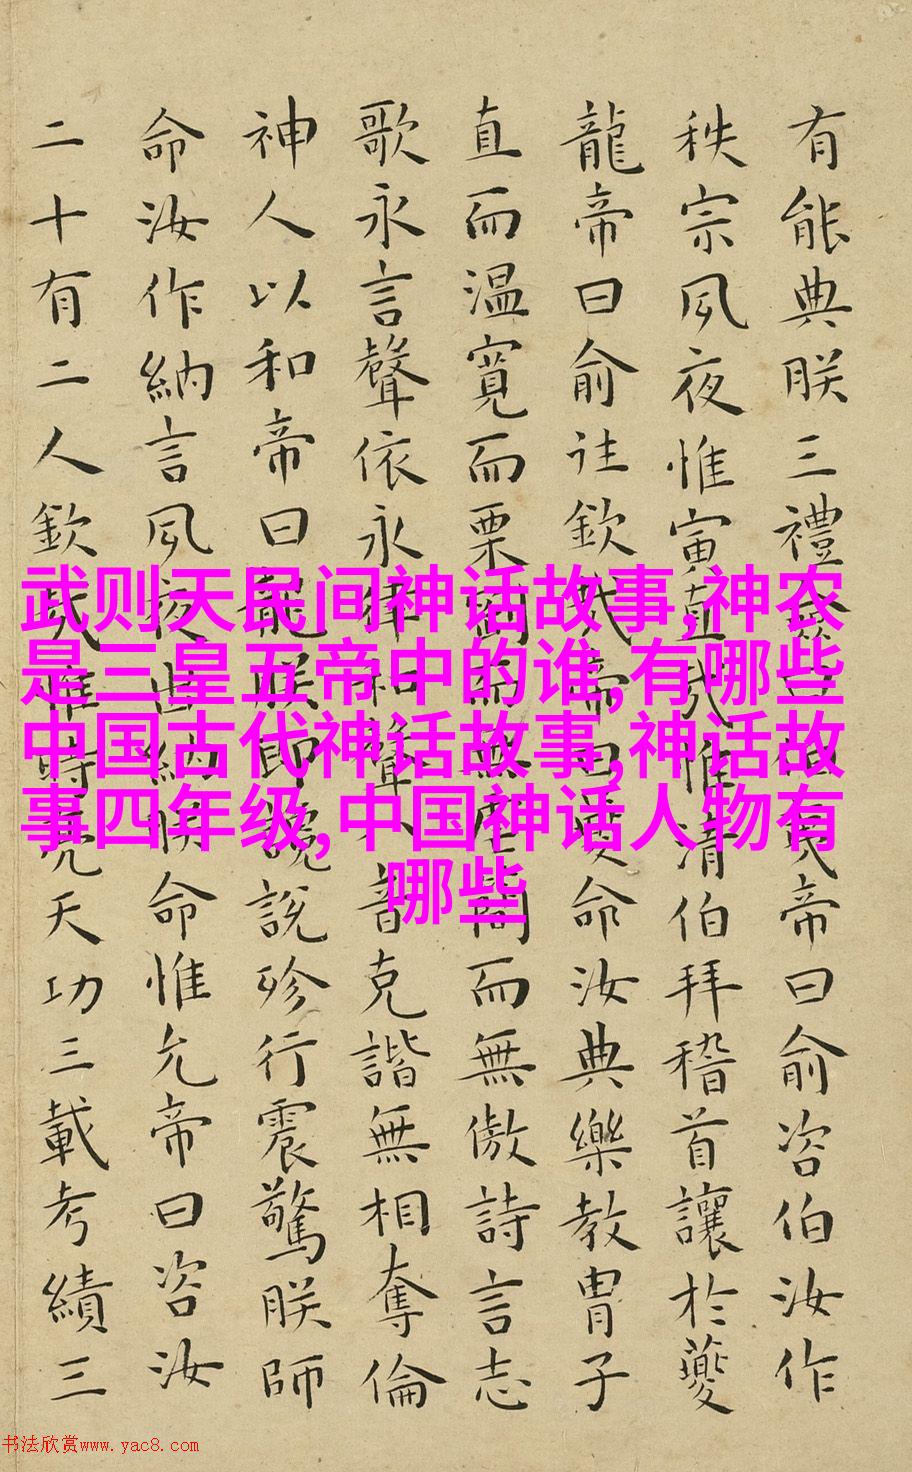 有能典朕三禮僉曰伯夷帝曰俞咨伯汝作
秩宗夙夜惟寅直哉惟清伯拜稽首讓於夔
龍帝曰俞往欽哉帝曰夔命汝典樂教冑子
直而温寬而栗剛而無虐簡而無傲詩言志
歌永言聲依永律和聲八音克諧無相奪倫
神人以和帝曰龍朕堲讒說殄行震驚朕師
命汝作納言夙夜出納朕命惟允帝曰咨汝
二十有二人欽哉惟時亮天功三載考績三
武则天民间神话故事,神农
是三皇五帝中的谁,有哪些
中国古代神话故事,神话故
事四年级,中国神话人物有
哪些
书法欣赏www.yac8.com